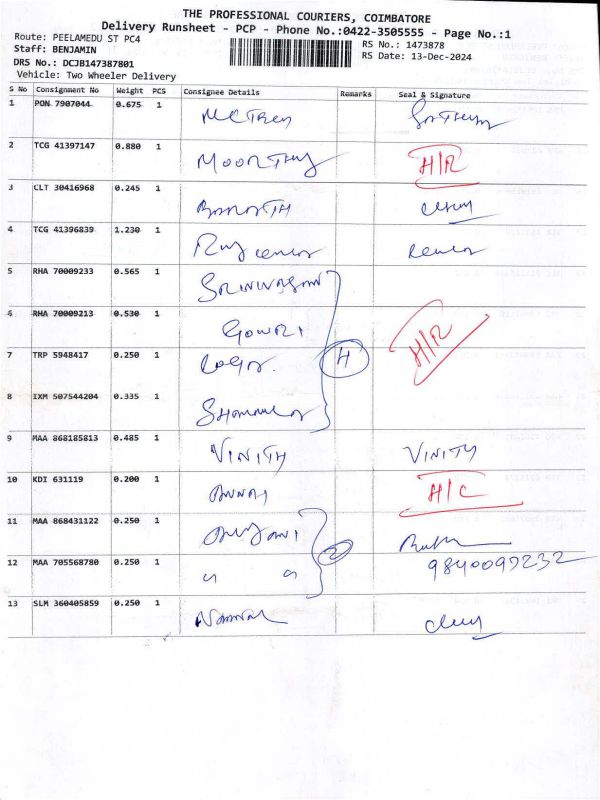 THE PROFESSIONAL COURIERS, COIMBATORE
Delivery Runsheet - PCP - Phone No.:0422-3505555 - Page No.:1
Route: PEELAMEDU ST PC4 RS No.: 1473878
Staff: BENJAMIN RS Date: 13-Dec-2024
DRS No.: DCJB147387801
Vehicle: Two Wheeler Delivery
S No Consignment No Weight PCS Consignee Details Remarks Seal & Signature
1 PON 7907044 0.675 1
2 TCG 41397147 0.880 1 MOORTHY H/R
3 CLT 30416968 0.245 1
4 TCG 41396839 1.230 1
5 RHA 70009233 0.565 1 SRINIVASAN
6 RHA 70009213 0.530 1 GOWRI H/R
7 TRP 5948417 0.250 1 H
8 IXM 507544204 0.335 1
9 MAA 868185813 0.485 1 VINITH VINITH
10 KDI 631119 0.200 1 H/C
11 MAA 868431122 0.250 1
12 MAA 705568780 0.250 1 " " 2 9840097232
13 SLM 360405859 0.250 1